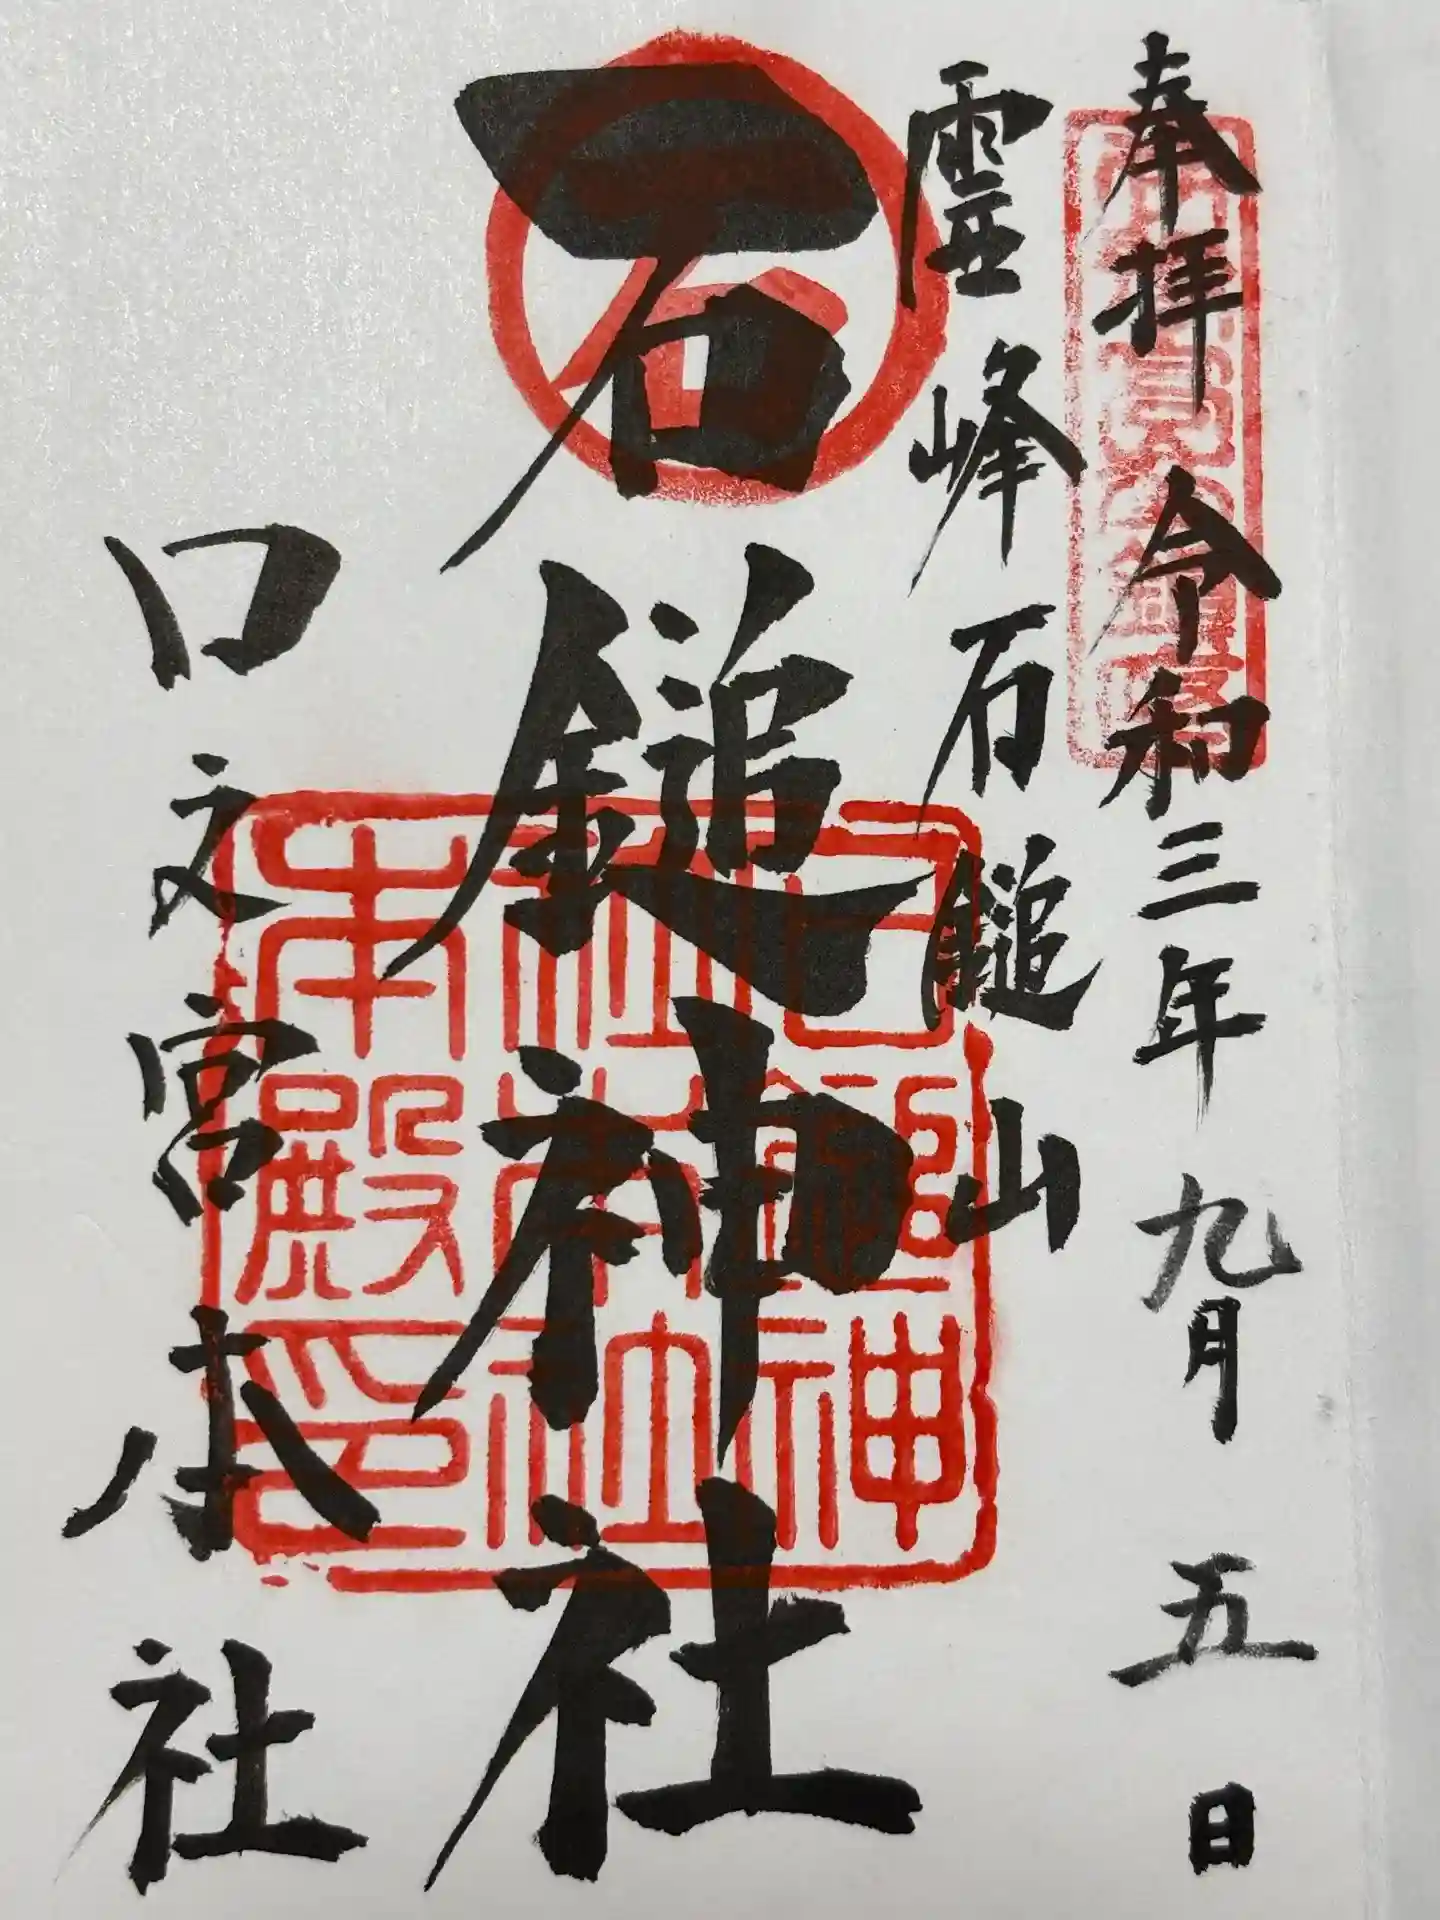 奉拝 令和三年 九月 五日
霊峰 石鎚山
石鎚神社
口之宮本社
石
石鎚神社中社本殿印